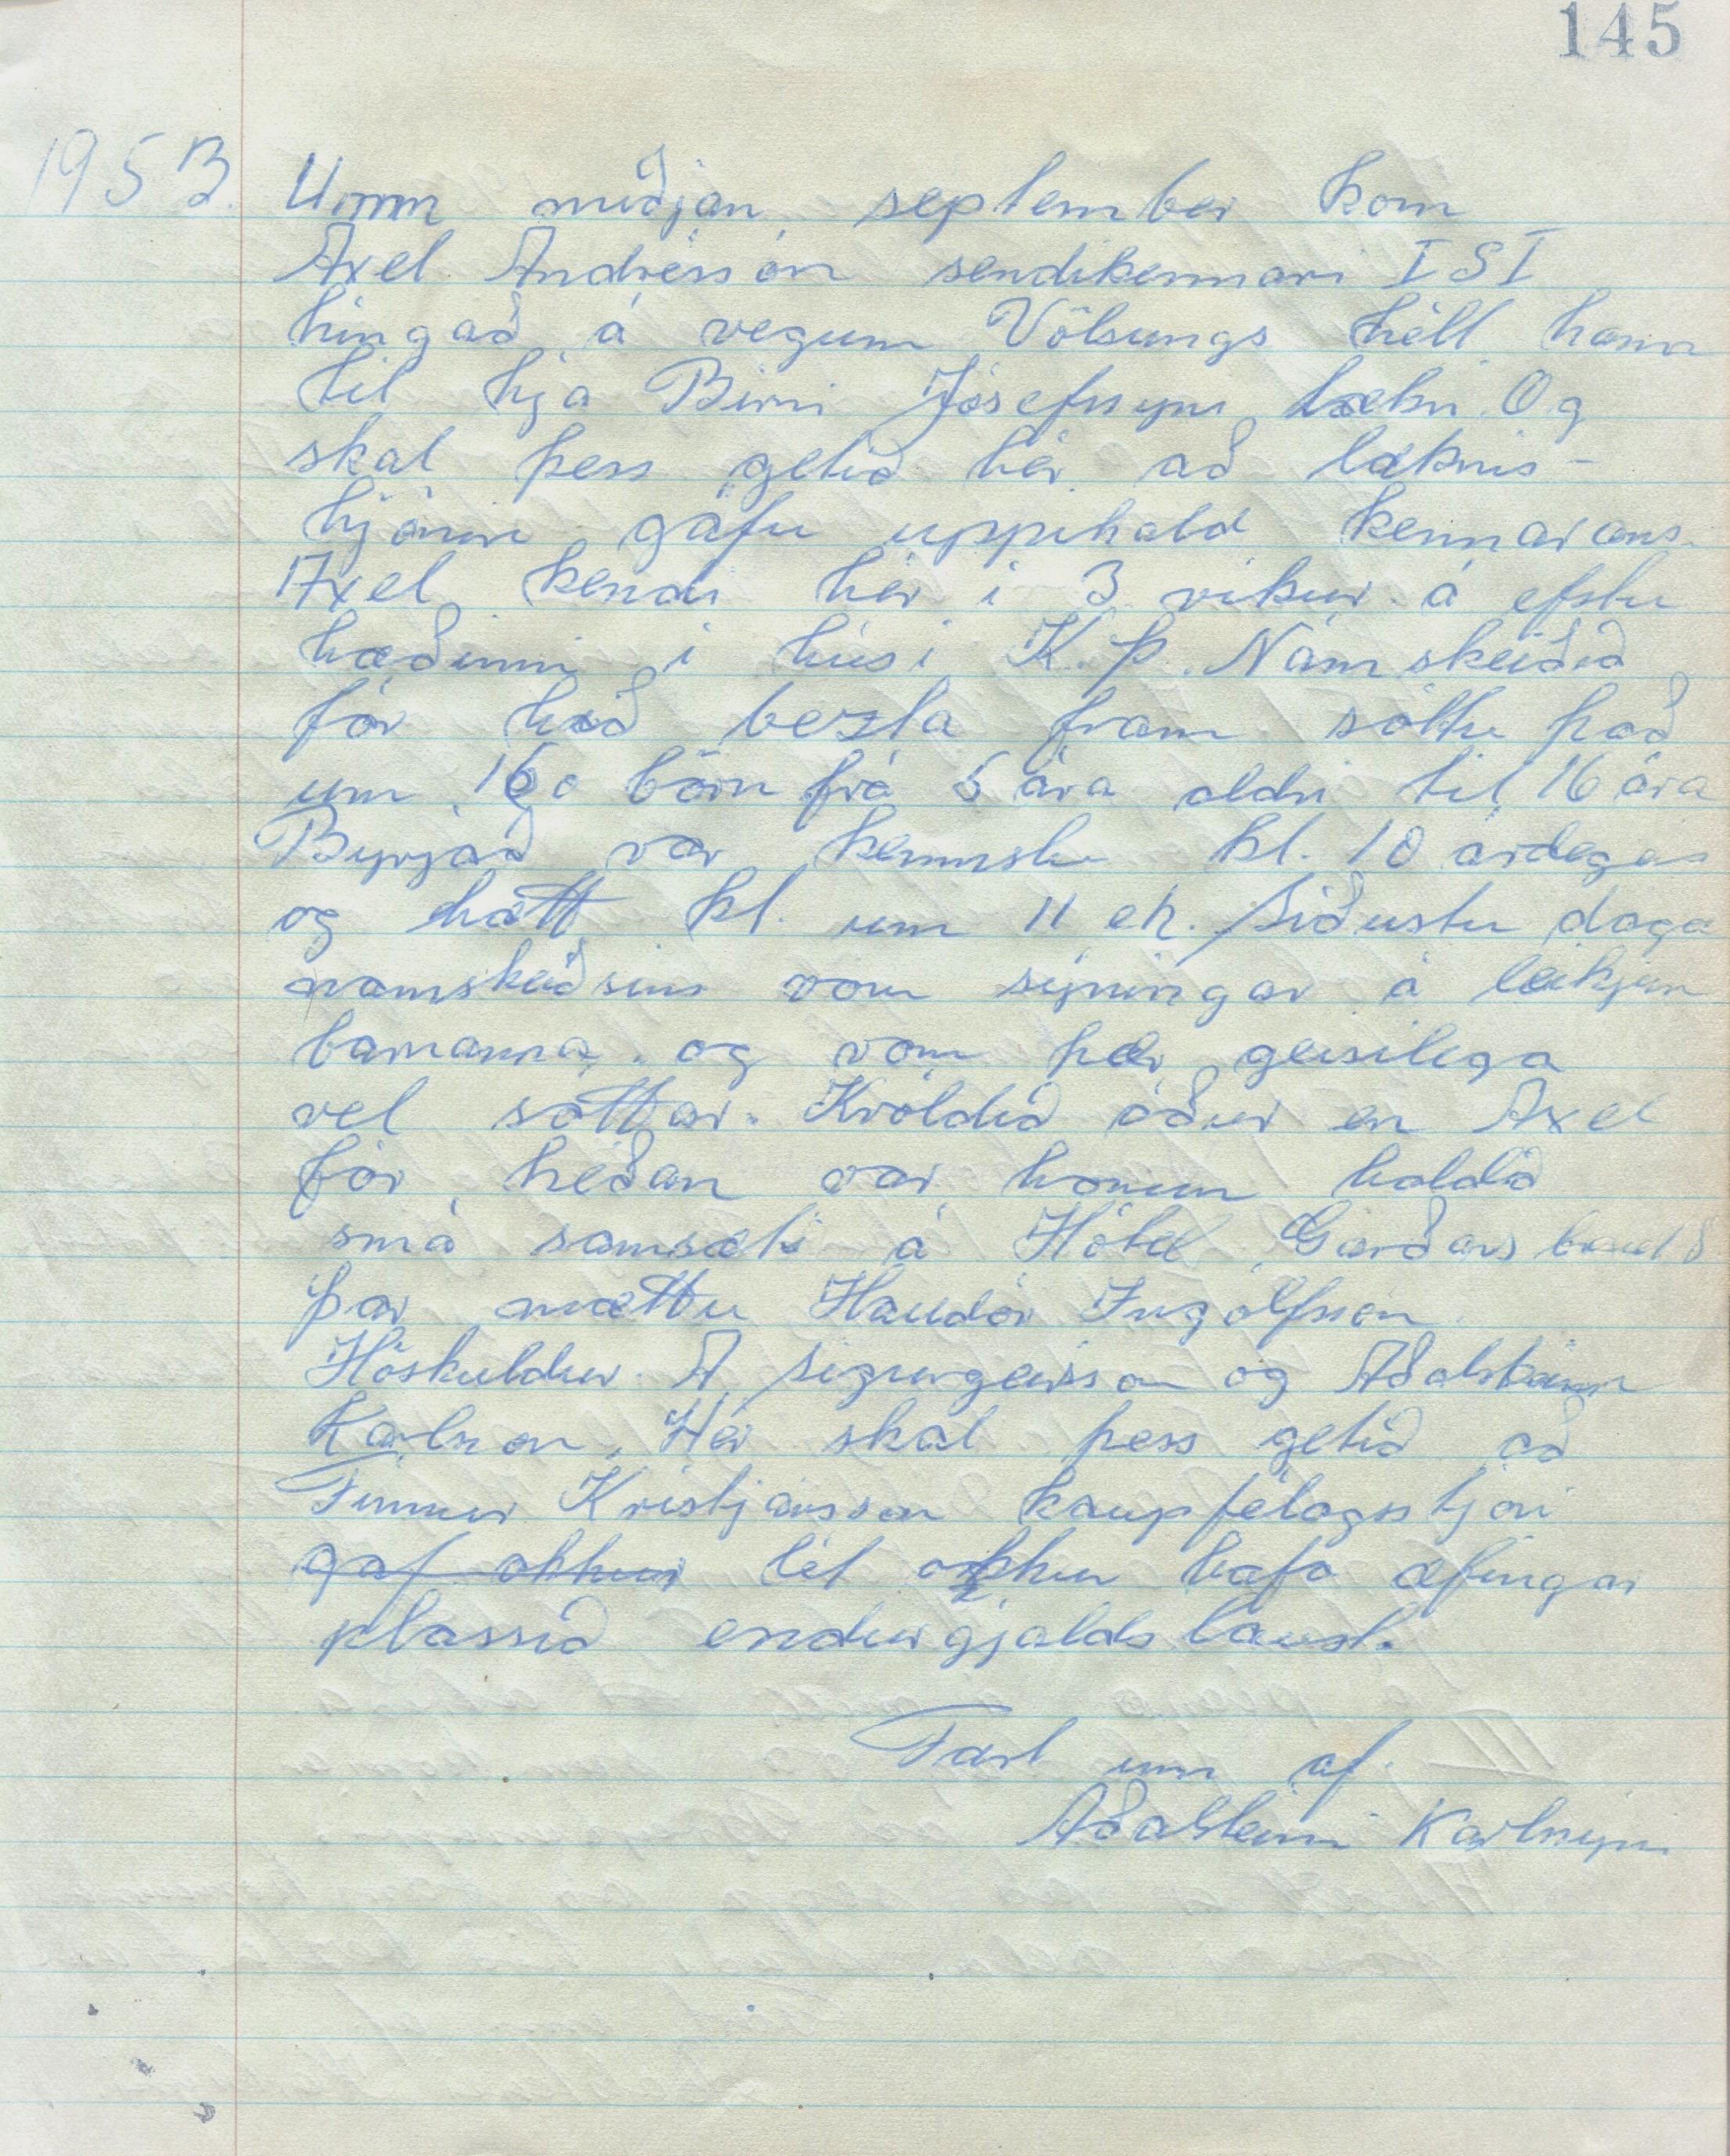 145
1953. Umm miðjan september kom
Axel Andrésson sendikennari ISI
hingað á vegum Völsungs hélt hann
til hjá Birni Jósefssyni lækni. Og
skal þess getið hér að læknis-
hjónin gáfu uppihald kennarans.
Axel kendi hér í 3 vikur á efstu
hæðinni í húsi K.Þ. Námskeiðið
fór hið bezta fram sóttu það
um 160 börn frá 5 ára aldri til 16 ára
Byrjað var kennslu kl. 10 árdegis
og hætt kl. um 11 eh. Síðustu daga
námskeiðsins voru sýningar á leikjum
barnanna. og voru þær geisilega
vel sóttar. Kvöldið áður en Axel
fór héðan var honum haldið
smá samsæti á Hótel Garðarsbraut 8
þar mættu Halldór Ingólfsson
Höskuldur A Sigurgeirsson og Aðalsteinn
Karlsson. Hér skal þess getið að
Finnur Kristjánsson kaupfélagsstjóri
gaf okkur lét okkur hafa æfingar
plássið endurgjaldslaust.
Fært inn af
Aðalsteini Karlssyni